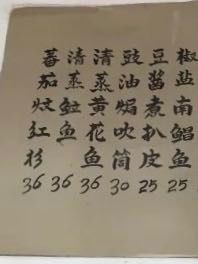 椒盐南鲳鱼 25
豆酱煮扒皮 25
豉油焗吹筒 30
清蒸黄花鱼 36
清蒸鱼 36
蕃茄炆红杉 36